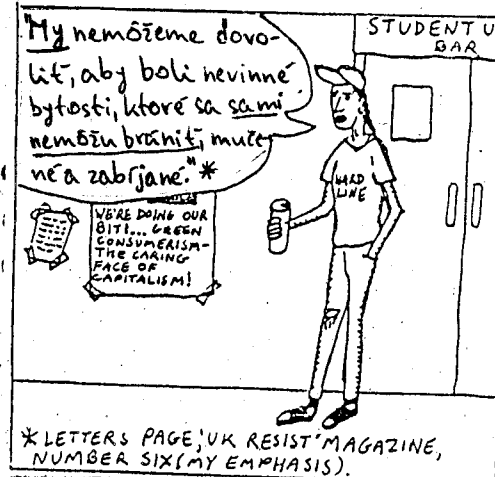 "My nemôžeme dovo-
liť, aby boli nevinné
bytosti, ktoré sa sami
nemôžu brániť, muče-
né a zabíjané." *
STUDENT U
BAR
HARD
LINE
WE'RE DOING OUR
BIT!... GREEN
CONSUMERISM-
THE CARING
FACE OF
CAPITALISM!
* LETTERS PAGE, 'UK RESIST' MAGAZINE,
NUMBER SIX (MY EMPHASIS).